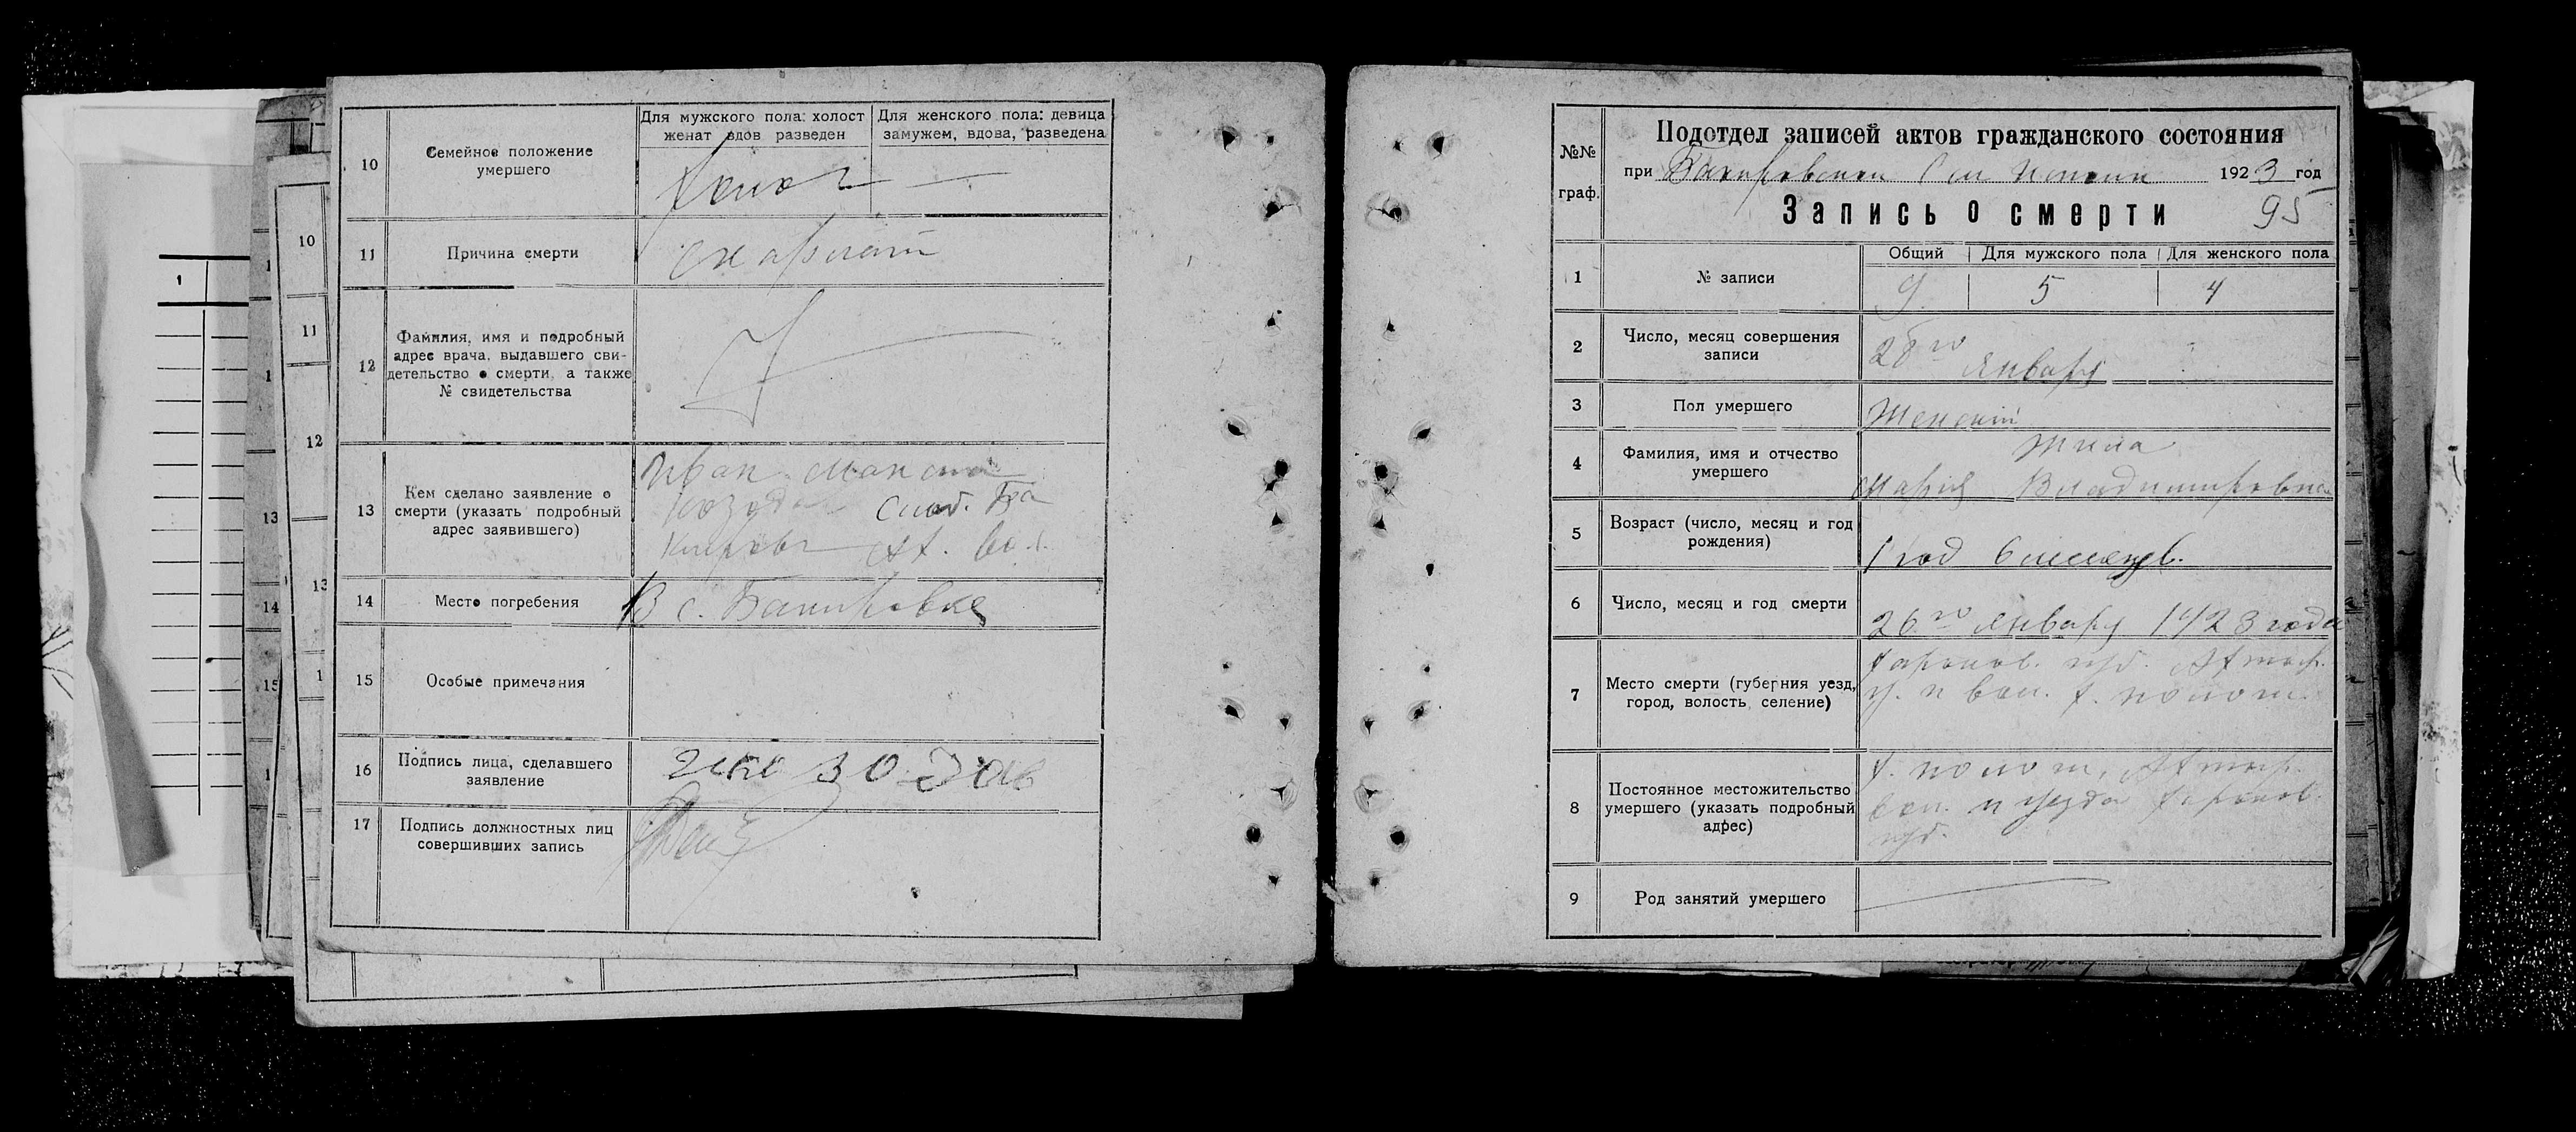 10
Семейное положение
умершего
Для мужского пола: холост
женат вдов разведен
Для женского пола: девица
замужем, вдова, разведена
холост
11
Причина смерти
скарлат
12
Фамилия, имя и подробный
адрес врача, выдавшего сви-
детельство о смерти, а также
№ свидетельства
13
Кем сделано заявление о
смерти (указать подробный
адрес заявившего)
Иван
слоб. Ба
кировк Ах. вол.
14
Место погребения
В с. Бакировке
15
Особые примечания
16
Подпись лица, сделавшего
заявление
17
Подпись должностных лиц
совершивших запись
10
11
12
13
14
15
1
№№
граф.
Подотдел записей актов гражданского состояния
при Бакировском Сел 1923 год
Запись о смерти 95
1
№ записи
Общий
Для мужского пола
Для женского пола
9
5
4
2
Число, месяц совершения
записи
28го января
3
Пол умершего
Женский
4
Фамилия, имя и отчество
умершего
Мария Владимировна
5
Возраст (число, месяц и год
рождения)
1 год 6 месяцев.
6
Число, месяц и год смерти
26го январу 1923 года
7
Место смерти (губерния уезд,
город, волость, селение)
Харьков. губ. Ахтыр.
у. и вол.
8
Постоянное местожительство
умершего (указать подробный
адрес)
Ахтыр.
вол. и уезда Харьков.
губ.
9
Род занятий умершего